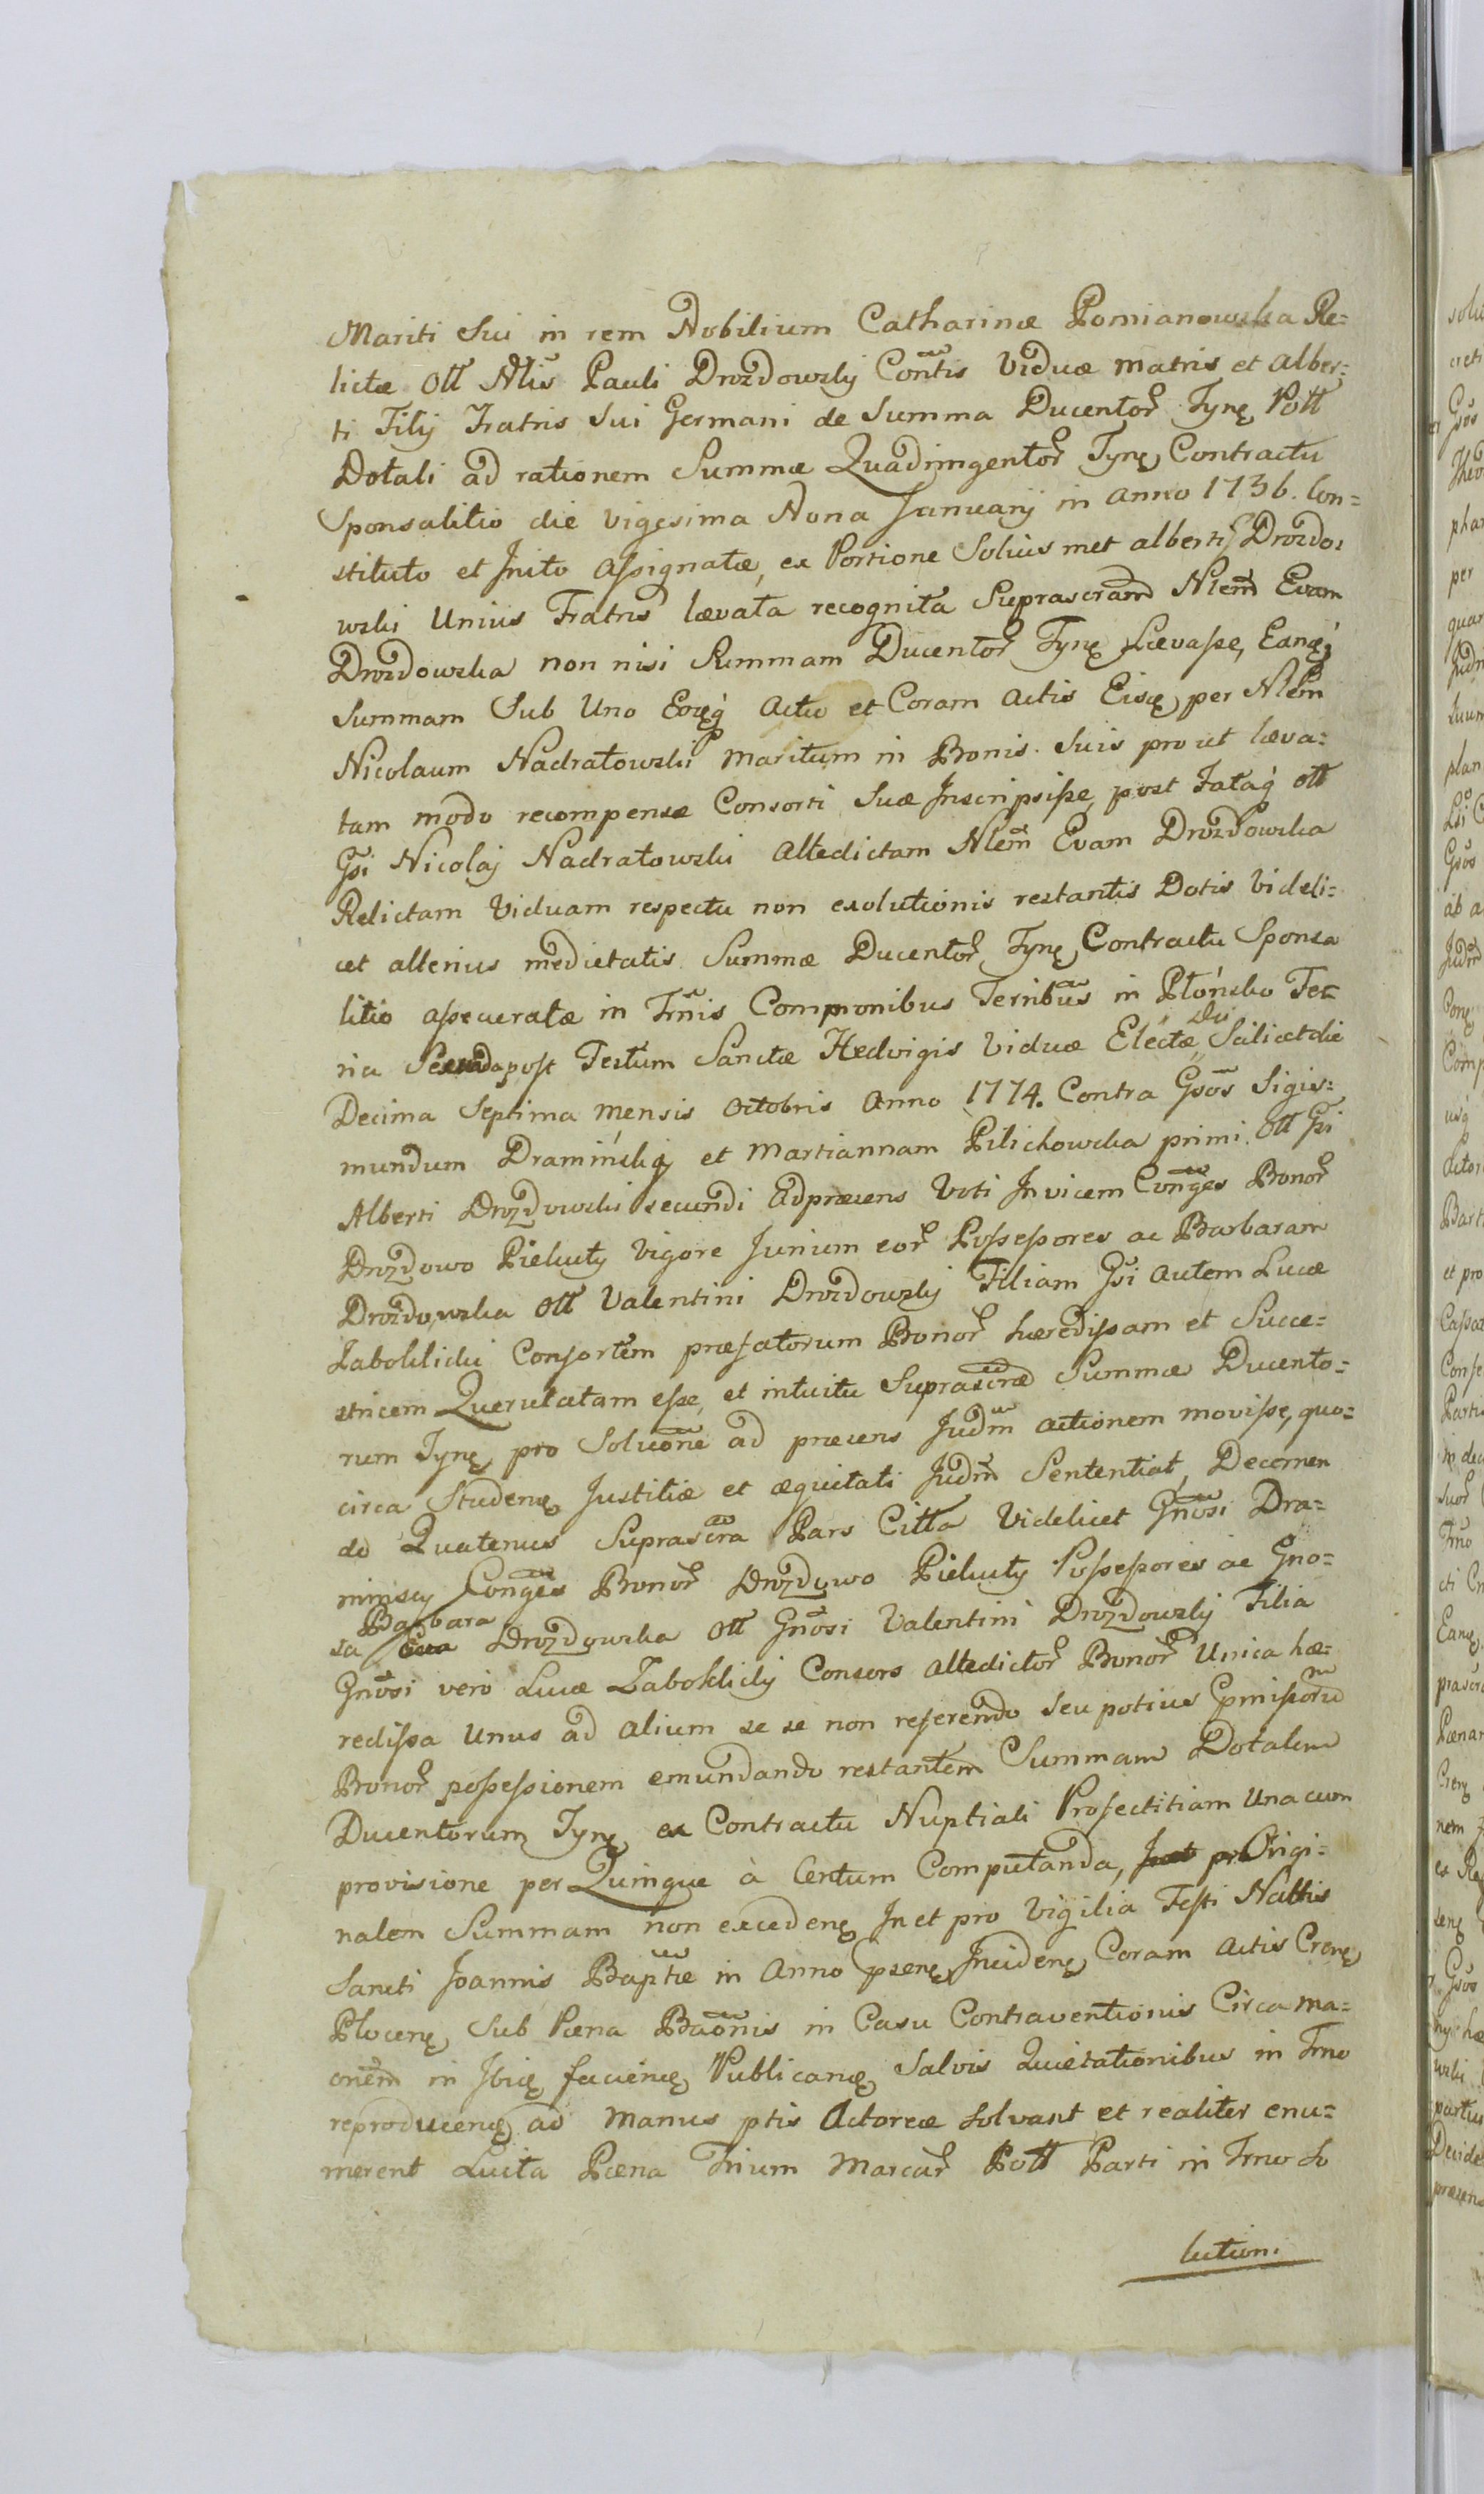 Mariti Sui in rem Nobilium Catharinæ Pomianowska Re=
lictæ Ott Nlis Pauli Drozdowskij Contis Viduæ matris et Alber=
ti Filij Fratris Sui Germani de Summa Ducentor Tynę Pott
Dotali ad rationem Summæ Quadringentor Tynę Contractu
Sponsalitio die vigesima Nona Januarij in anno 1736. Con=
stituto et Inito Assignatæ, ex Portione Solius met alberti Drozdo=
wski Unius Fratris lævata recognita Suprascram Nlem Evam
Drozdowska non nisi Summam Ducentor Tynę Lævasse, Eanqꝫ
Summam Sub Uno Eoqꝫ Actu et Coram Actis Eisę per Nlem
Nicolaum Nadratowski Maritum in Bonis Suis pro ut læva=
tam modo recompensæ Consorti Suæ Inscripsisse, post Fataq́ Ott
Gsi Nicolaj Nadratowski Altedictam Nlem Evam Drozdowska
Relictam Viduam respectu non exolutionis restantis Dotis Videli=
cet alterius medietatis Summæ Ducentor Tynę Contractu Sponsa
litio asseceratæ in Trnis Compronibus Terribus in Płońsko Fe=
ria Secunda post Festum Sanctæ Hedvigis Viduæ Electæ Du Scilicet die
Decima Septima mensis Octobris Anno 1774. Contra Gsos Sigis=
mundum Dramińskij et Martiannam Pilichowska primi. Ott Gsi
Alberti Drozdowski secundi ad præsens Voti Invicem Conges Bonor
Drozdowo Pieluty Vigore Jurium eor Possessores ac Barbaram
Drozdowska Ott Valentini Drozdowskij Filiam Gsi autem Lucæ
Zabokliki Consortem præfatorum Bonor hæredissam et Succe=
stricem Querulatam esse, et intuitu Suprascræ Summæ Ducento=
rum Tynę pro Solucone ad præsens Judm actionem movisse, quo=
circa Studenę Justitiæ et æquitati Judm Sententiat, Decernen
do Quatenus Suprascra Pars Citta Videlicet Gnosi Dra=
minscy Conges Bonor Drozdowo Pieluty Possessores ac Gno=
sa Barbara Drozdowska Ott Gnosi Valentini Drozdowskij Filia
Gnosi vero Lucæ Zaboklickij Consors altedictor Bonor Unica hæ=
redissa Unus ad alium se se non referendo seu potius Pmissoru
Bonor possessionem emundando restantem Summam Dotalem
Ducentorum Tynę ex Contractu Nuptiali Profectitiam Una cum
provisione per Quinque à Centum Computanda, pr Origi=
nalem Summam non excedenę In et pro Vigilia Festi Nattis
Sancti Joannis Baptæ in Anno Psenę Incidenę Coram Actis Crenę
Plocenę Sub Pæna Baonis in Casu Contraventionis Circa ma=
onem in Ibię facienę Publicanę Salvis Quietationibus in Trno
reproducenę ad manus ptis Actoreæ Solvant et realiter enu=
merent Luita Pæna Trium Marcar Pott Parti in Trno So
lution.